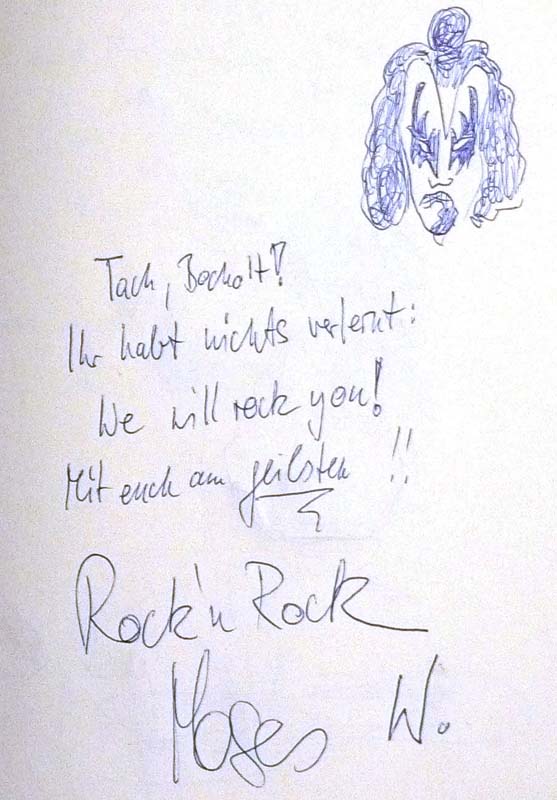 Tach, Bocholt!
Ihr habt nichts verlernt:
We will rock you!
Mit euch am geilsten!!
Rock'n Rock
Moses W.